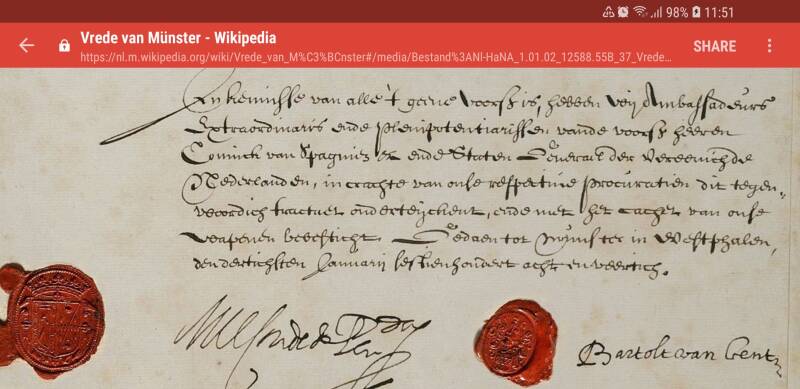 98% 11:51
Vrede van Münster - Wikipedia
https://nl.m.wikipedia.org/wiki/Vrede_van_M%C3%BCnster#/media/Bestand%3ANl-HaNA_1.01.02_12588.55B_37_Vrede…
SHARE
kennisse van alle 't gene voorsz is, hebben wij Ambassadeurs
Extraordinaris ende Plenipotentiarissen vande voorsz heeren
Coninck van Spagnien &c ende Staten Generael der Vereenichde
Nederlanden, in crachte van onse respective procuratien dit tegen-
woordich tractaet onderteijckent, ende met het cachet van onse
wapenen bevesticht. Gedaen tot Munster in Westphalen,
den dertichsten Januarij sestienhondert acht en veertich.
Bartolt van Gent